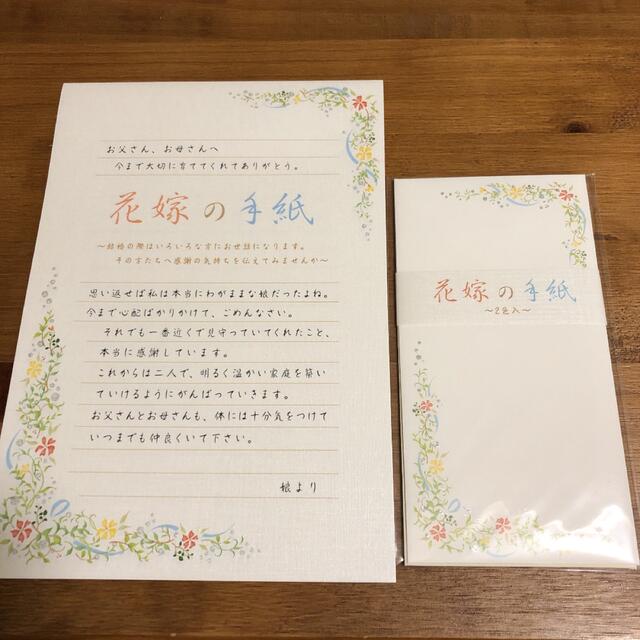 お父さん、お母さんへ
今まで大切に育ててくれてありがとう。
花嫁の手紙
〜結婚の際はいろいろな方にお世話になります。
その方たちへ感謝の気持ちを伝えてみませんか〜
思い返せば私は本当にわがままな娘だったよね。
今まで心配ばかりかけて、ごめんなさい。
それでも一番近くで見守っていてくれたこと、
本当に感謝しています。
これからは二人で、明るく温かい家庭を築い
ていけるようにがんばっていきます。
お父さんとお母さんも、体には十分気をつけて
いつまでも仲良くいて下さい。
娘より
花嫁の手紙
〜2色入〜